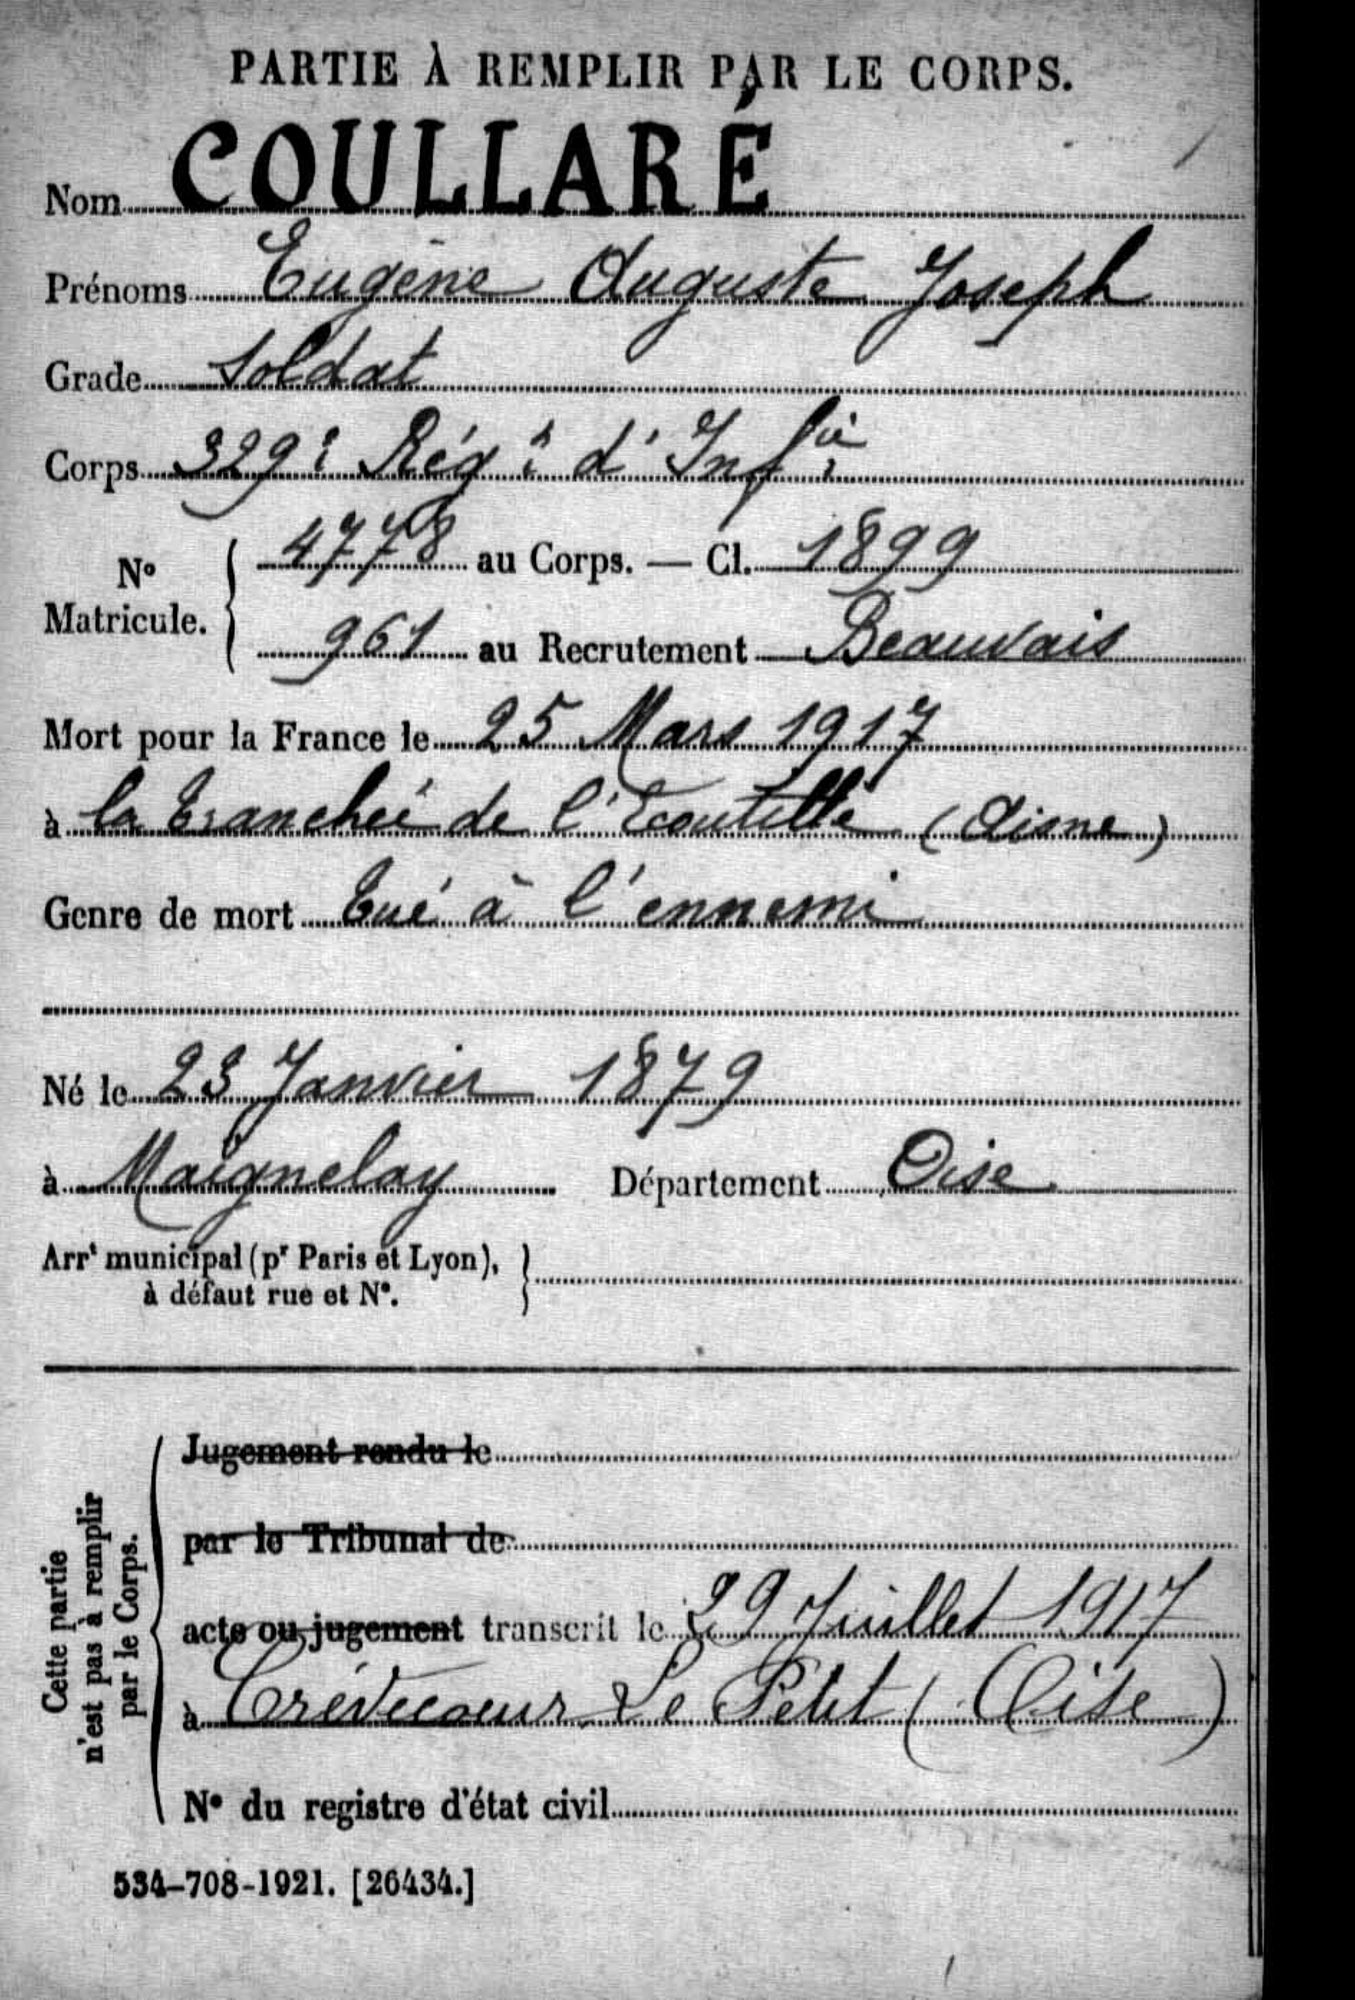 PARTIE À REMPLIR PAR LE CORPS.
Nom COULLARÉ
Prénoms Eugène Auguste Joseph
Grade Soldat
Corps 329e Régt d'Infie
No Matricule. 4778 au Corps. — Cl. 1899
961 au Recrutement Beauvais
Mort pour la France le 25 Mars 1917
à la tranchée de l'Ecoutille (Aisne)
Genre de mort tué à l'ennemi
Né le 23 Janvier 1879
à Maignelay Département Oise
Arrt municipal (pr Paris et Lyon),
à défaut rue et No.
Cette partie
n'est pas à remplir
par le Corps.
Jugement rendu le
par le Tribunal de
acte ou jugement transcrit le 29 Juillet 1917
à Crévecoeur Le Petit (Oise)
No du registre d'état civil
534-708-1921. [26434.]